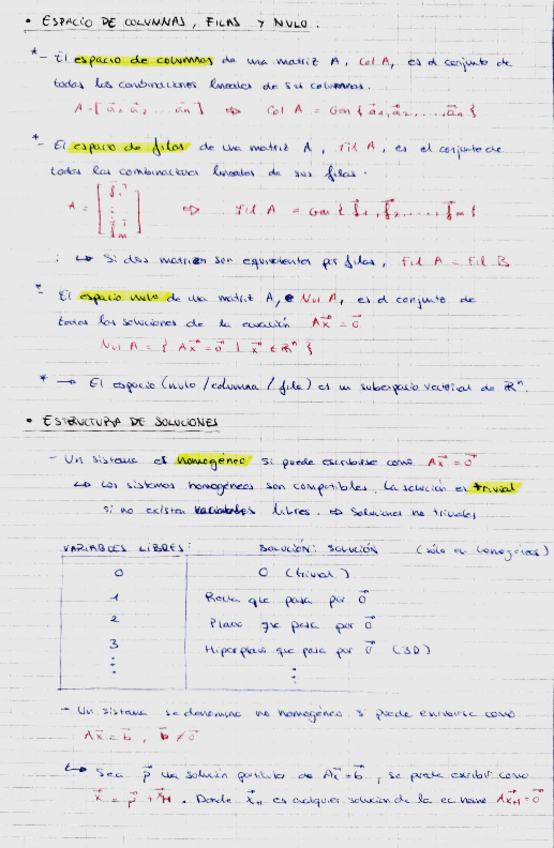 • ESPACIO DE COLUMNAS, FILAS Y NULO.
* - El espacio de columnas de una matriz A, Col A, es el conjunto de
todas las combinaciones lineales de sus columnas.
A = [ a⃗₁ a⃗₂ ... a⃗ₙ ] ⇒ Col A = Gen { a⃗₁, a⃗₂, ..., a⃗ₙ }
* - El espacio de filas de una matriz A, Fil A, es el conjunto de
todas las combinaciones lineales de sus filas.
A = [ f⃗₁ ⋮ f⃗ₘ ] ⇒ Fil A = Gen { f⃗₁, f⃗₂, ..., f⃗ₘ }
: ↳ Si dos matrices son equivalentes por filas, Fil A = Fil B
* - El espacio nulo de una matriz A, Nul A, es el conjunto de
todas las soluciones de la ecuación Ax⃗ = 0⃗
Nul A = { Ax⃗ = 0⃗ | x⃗ ∈ ℝⁿ }
* → El espacio (nulo / columna / fila) es un subespacio vectorial de ℝⁿ.
• ESTRUCTURA DE SOLUCIONES
- Un sistema es homogéneo si puede escribirse como Ax⃗ = 0⃗
↳ Los sistemas homogéneos son compatibles. La solución es trivial
si no existen variables libres. ⇒ Soluciones no triviales
VARIABLES LIBRES: SOLUCIÓN: SOLUCIÓN (sólo en homogéneos)
0 0 (trivial)
1 Recta que pasa por 0⃗
2 Plano que pasa por 0⃗
3 Hiperplano que pasa por 0⃗ (3D)
⋮ ⋮
- Un sistema se denomina no homogéneo si puede escribirse como
Ax⃗ = b⃗, b⃗ ≠ 0⃗
↳ Sea p⃗ una solución particular de Ax⃗ = b⃗, se puede escribir como
x⃗ = p⃗ + x⃗_H. Donde x⃗_H es cualquier solución de la ec Ax⃗_H = 0